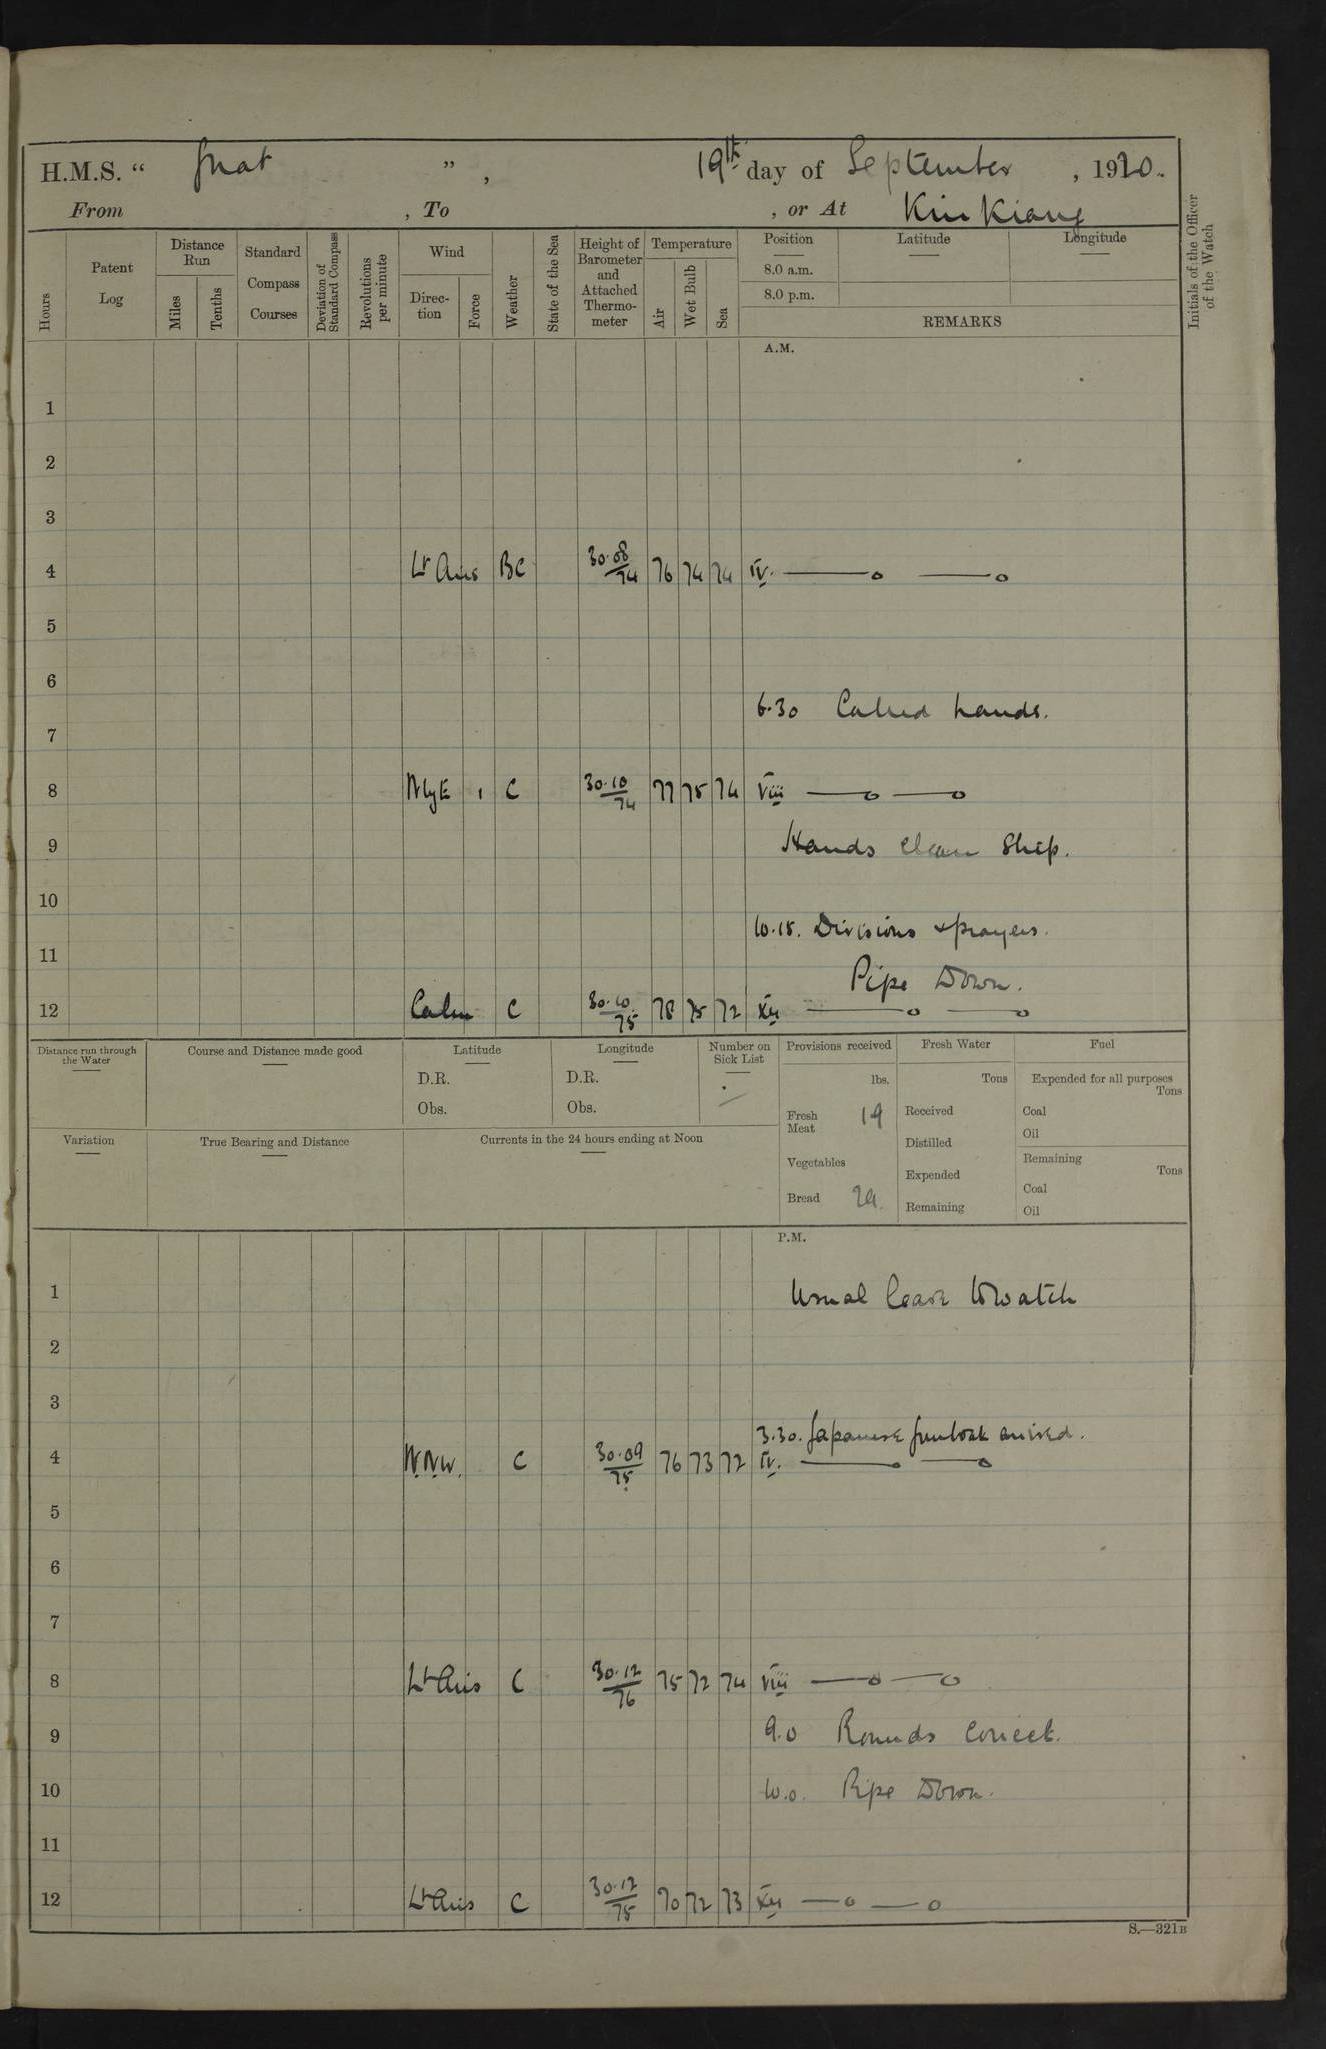 H.M.S. “ Gnat ”, 19th day of September, 1920.
From , To , or At Kiu Kiang
Hours
Patent Log
Distance Run
Miles
Tenths
Standard Compass Courses
Deviation of Standard Compass
Revolutions per minute
Wind
Direc- tion
Force
Weather
State of the Sea
Height of Barometer and Attached Thermo- meter
Temperature
Air
Wet Bulb
Sea
Position
8.0 a.m.
8.0 p.m.
Latitude
Longitude
REMARKS
Initials of the Officer of the Watch
A.M.
1
2
3
4 Lt Airs BC 30.08/74 76 74 74 IV.
5
6
6.30 Called hands.
7
8 NlyE 1 C 30.10/74 77 75 74 VIII
9 Hands clean Ship.
10
10.15. Divisions & prayers.
11
Pipe Down.
12 Calm C 30.10/75 78 75 72 XII
Distance run through the Water
Course and Distance made good
Latitude
D.R.
Obs.
Longitude
D.R.
Obs.
Number on Sick List
Provisions received
lbs.
Fresh Meat 19
Vegetables
Bread 24
Fresh Water
Tons
Received
Distilled
Expended
Remaining
Fuel
Expended for all purposes
Tons
Coal
Oil
Remaining
Tons
Coal
Oil
Variation
True Bearing and Distance
Currents in the 24 hours ending at Noon
P.M.
1 Usual leave to watch
2
3
3.30. Japanese gunboat arrived.
4 N.N.W. C 30.09/75 76 73 72 IV.
5
6
7
8 Lt Airs C 30.12/76 75 72 74 VIII
9 9.0 Rounds Correct.
10 10.0. Pipe Down.
11
12 Lt Airs C 30.12/75 70 72 73 XII
S.—321B